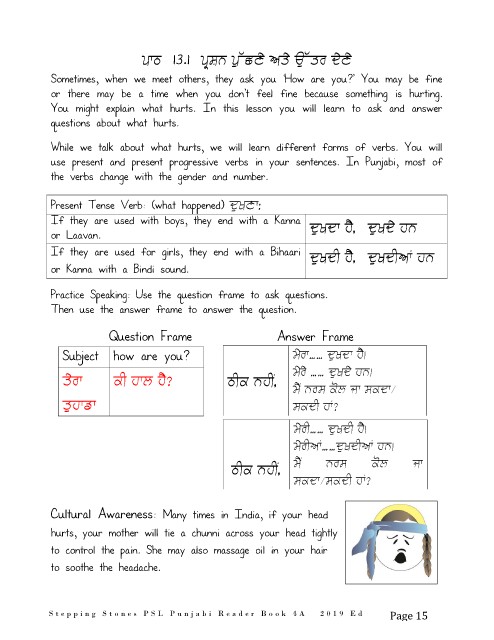 ਪਾਠ 13.1 ਪ੍ਰਸ਼ਨ ਪੁੱਛਣੇ ਅਤੇ ਉੱਤਰ ਦੇਣੇ
Sometimes, when we meet others, they ask you 'How are you?' You may be fine
or there may be a time when you don't feel fine because something is hurting.
You might explain what hurts. In this lesson you will learn to ask and answer
questions about what hurts.
While we talk about what hurts, we will learn different forms of verbs. You will
use present and present progressive verbs in your sentences. In Punjabi, most of
the verbs change with the gender and number.
Present Tense Verb: (what happened) ਦੁਖਣਾ:
If they are used with boys, they end with a Kanna
or Laavan.
ਦੁਖਦਾ ਹੈ, ਦੁਖਦੇ ਹਨ
If they are used for girls, they end with a Bihaari
or Kanna with a Bindi sound.
ਦੁਖਦੀ ਹੈ, ਦੁਖਦੀਆਂ ਹਨ
Practice Speaking: Use the question frame to ask questions.
Then use the answer frame to answer the question.
Question Frame
Subject how are you?
ਤੇਰਾ ਕੀ ਹਾਲ ਹੈ?
ਤੁਹਾਡਾ
Answer Frame
ਠੀਕ ਨਹੀਂ,
ਮੇਰਾ...... ਦੁਖਦਾ ਹੈ।
ਮੇਰੇ ...... ਦੁਖਦੇ ਹਨ।
ਮੈਂ ਨਰਸ ਕੋਲ ਜਾ ਸਕਦਾ/
ਸਕਦੀ ਹਾਂ?
ਠੀਕ ਨਹੀਂ,
ਮੇਰੀ...... ਦੁਖਦੀ ਹੈ।
ਮੇਰੀਆਂ......ਦੁਖਦੀਆਂ ਹਨ।
ਮੈਂ ਨਰਸ ਕੋਲ ਜਾ
ਸਕਦਾ/ਸਕਦੀ ਹਾਂ?
Cultural Awareness: Many times in India, if your head
hurts, your mother will tie a chunni across your head tightly
to control the pain. She may also massage oil in your hair
to soothe the headache.
Stepping Stones PSL Punjabi Reader Book 4A 2019 Ed Page 15